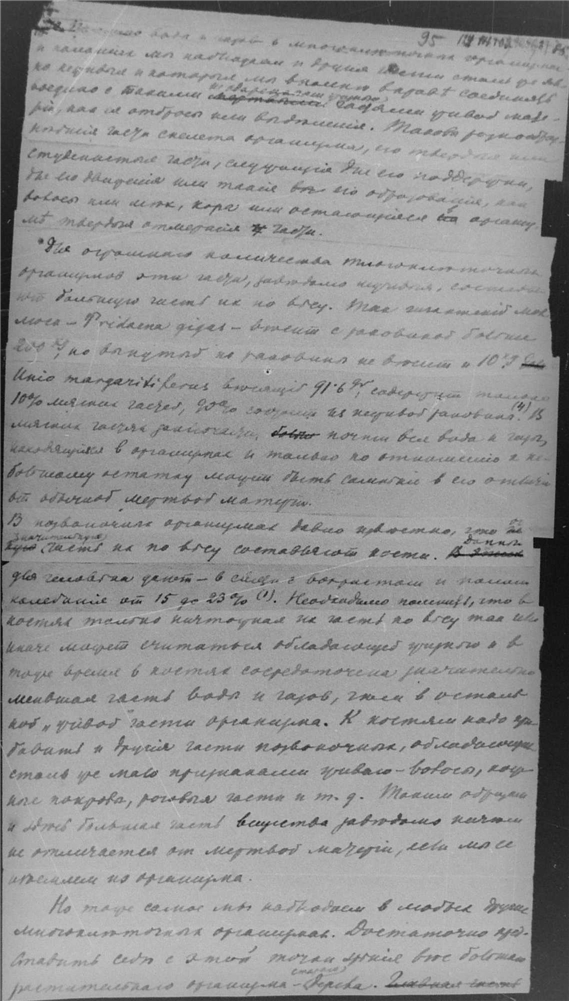 95
воды и газов в многоклеточном организме
и помимо их мы наблюдаем и другия части столь же яв-
но неживыя и которыя мы вполне вправѣ соединять
воедино с такими частями живой мате-
рии, как ея отбросы или выделения. Таковы разнообраз-
нейшия части скелета организма, его твердыя или
студенистыя части, служащия для его поддержки,
для его движения или такия его образования, как
волосы или кора или остающияся на организ-
мѣ твердыя отмершия части.
Для огромнаго количества многоклеточных
организмов эти части, заведомо неживыя, составля-
ют большую часть их по вѣсу. Так гигантский мол-
люск – Tridacna gigas – весит с раковиной больше
200 но вынутый из раковины не весит и 10
Unio margaritiferus весящий 91.6 gr, содержит только
10% мягких частей, 90% состоит из неживой раковины. В
мягких частях почти вся вода и газы,
находящияся в организме и только по отношению к не-
большому остатку может быть сомнение в его отличии
от обычной мертвой материи.
В позвоночных организмах давно известно, что
значительную часть их по вѣсу составляют кости. Данныя
для человека дают – в связи с возрастом и полом
колебание от 15 до 23% (1). Необходимо помнить, что в
костях только ничтожная их часть по вѣсу так или
иначе может считаться обладающей жизнью и в
тоже время в костях сосредоточена значительно
меньшая часть воды и газов, чем в осталь-
ной „живой" части организма. К костям надо при-
бавить и другия части позвоночных, обладающия
столь же мало признаками живого – волосы, кож-
ные покровы, роговыя части и т. д. Таким образом
и здесь большая часть вещества заведомо ничем
не отличается от мертвой материи, если мы ее
отъемлем из организма.
Но тоже самое мы наблюдаем в любых других
многоклеточных организмах. Достаточно пред-
ставить себе с этой точки зрения все большия
растительнаго организма – дерева. Главная часть